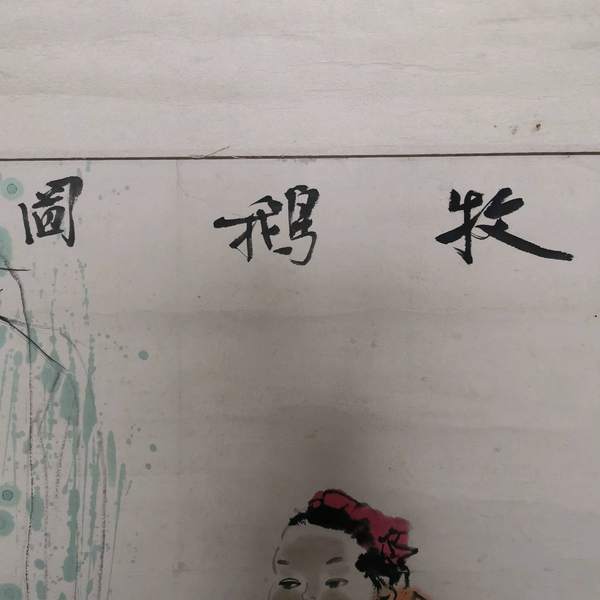 牧鵝圖